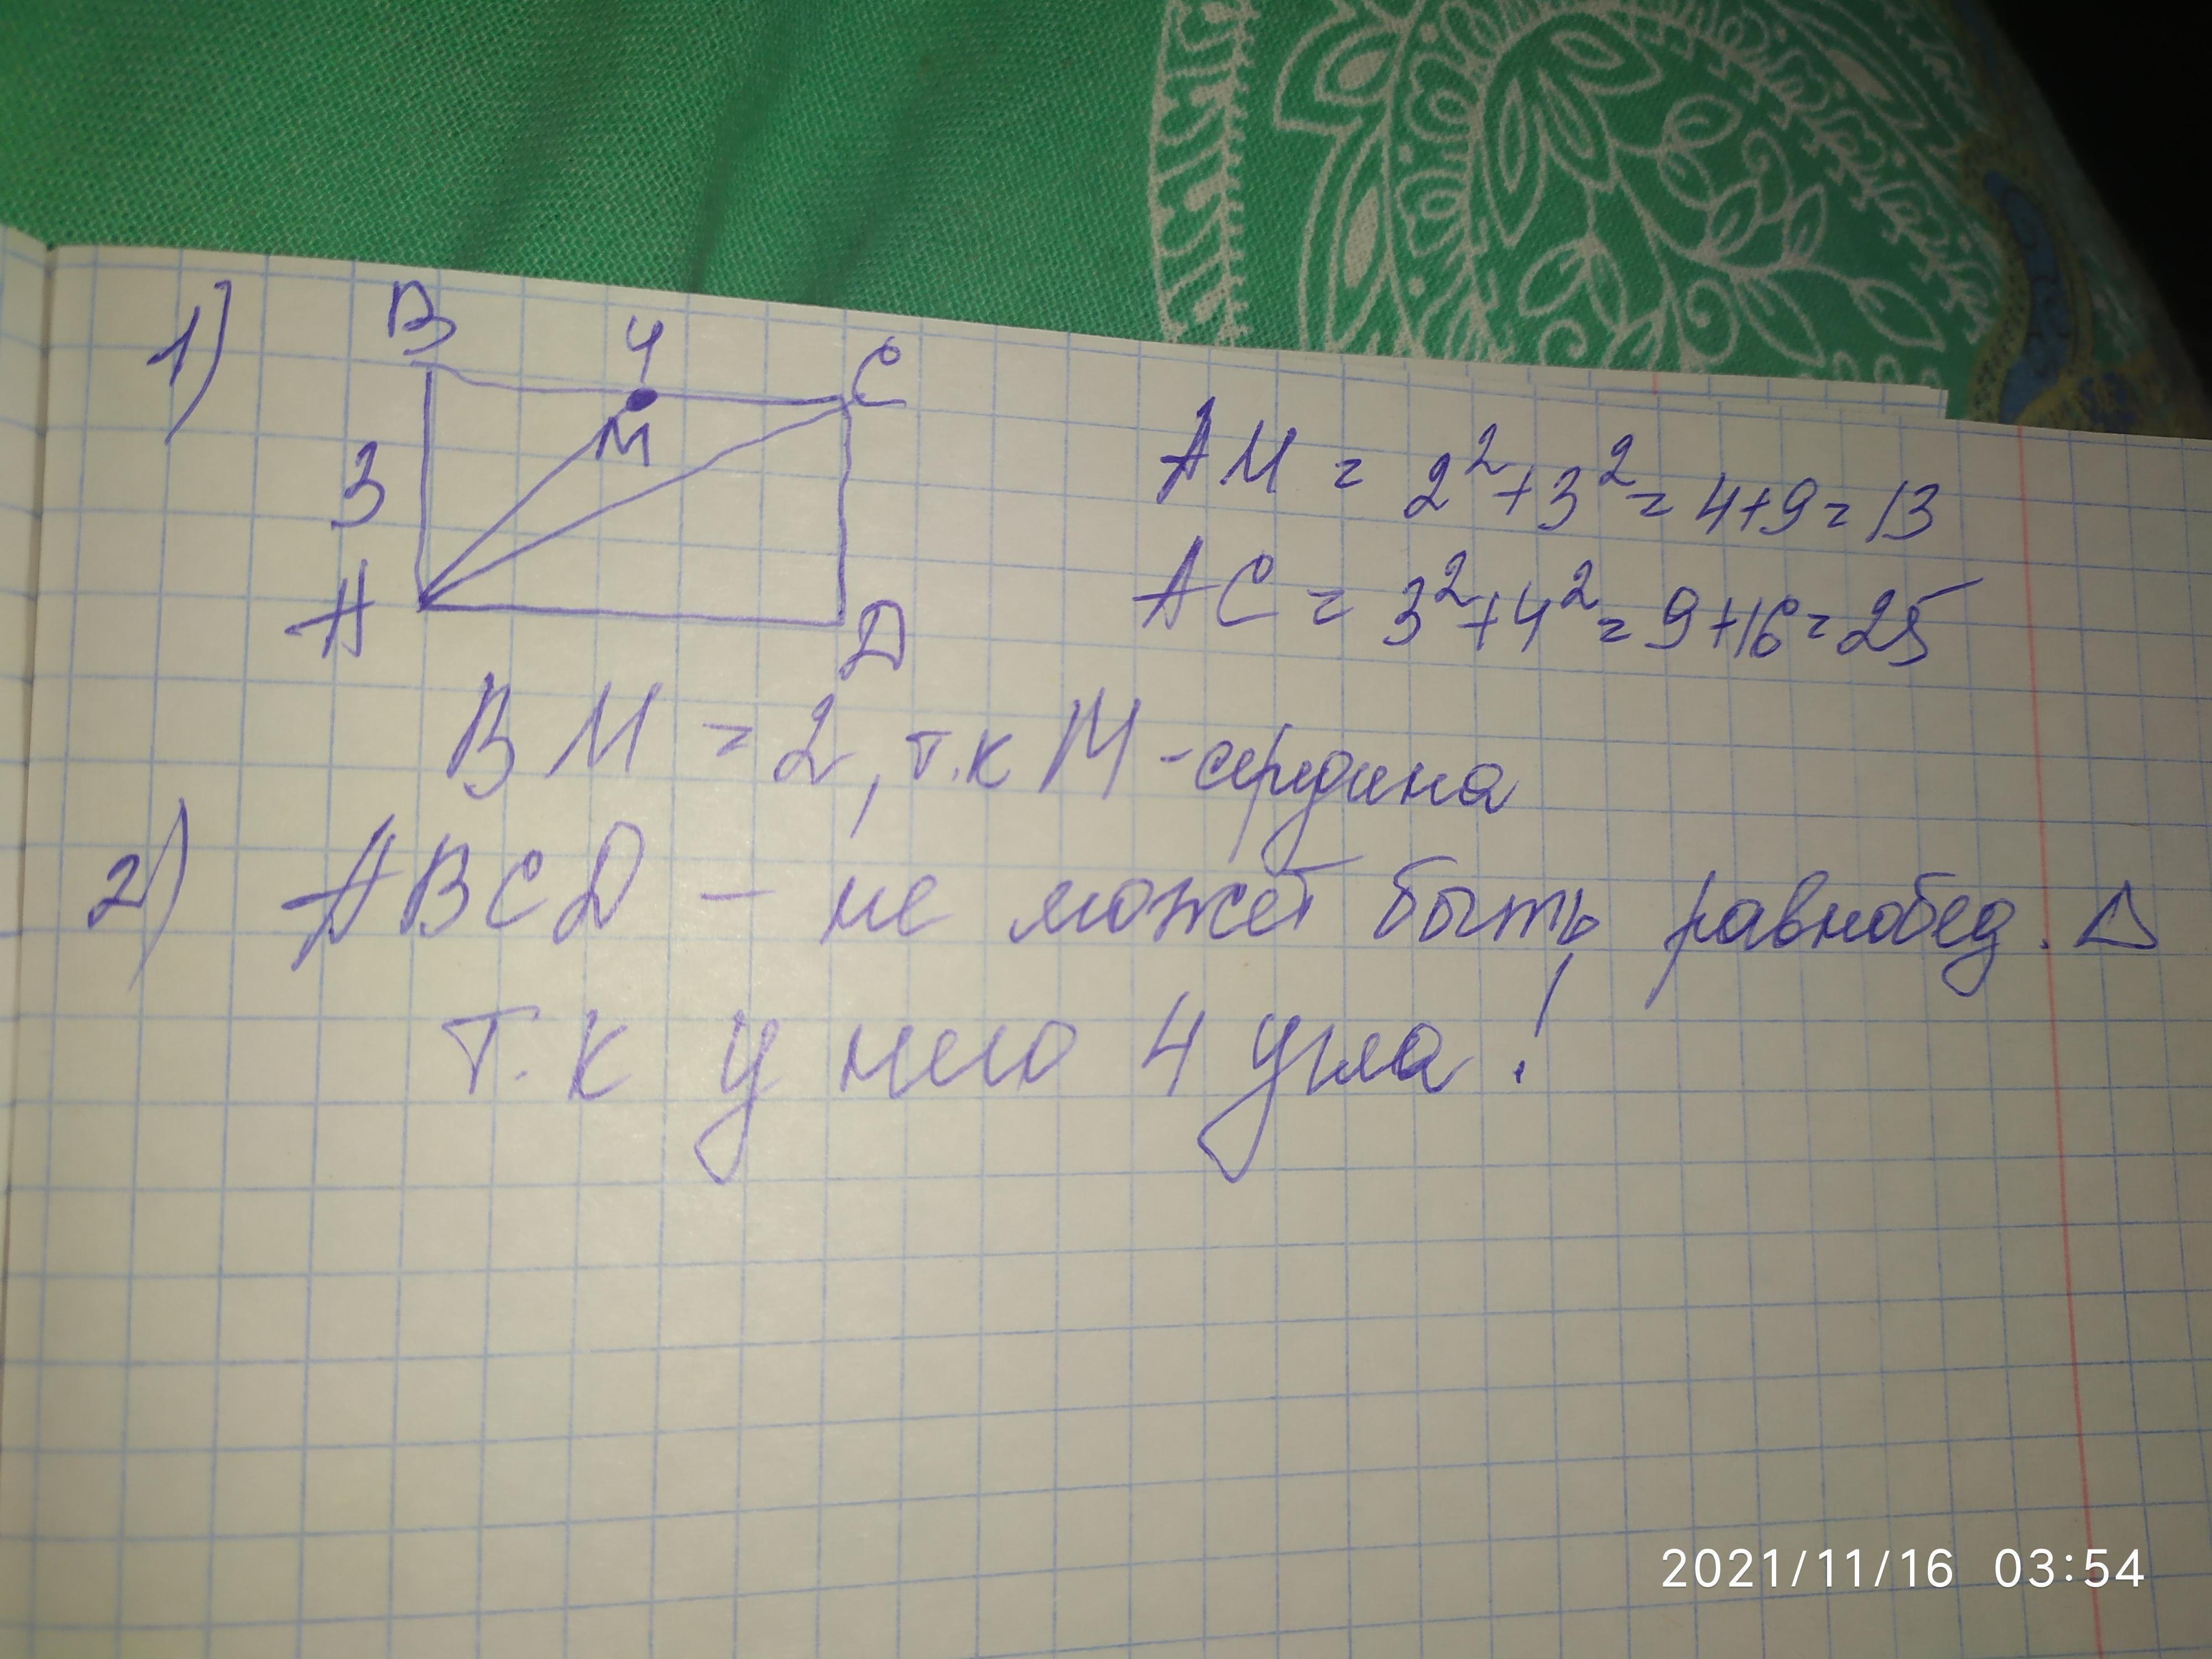 1)
B
4
C
M
3
A
D
AM = 2²+3² = 4+9 = 13
AC = 3²+4² = 9+16 = 25
BM = 2, т.к M - середина
2) ABCD - не может быть равнобед. △
т.к у него 4 угла!
2021/11/16 03:54